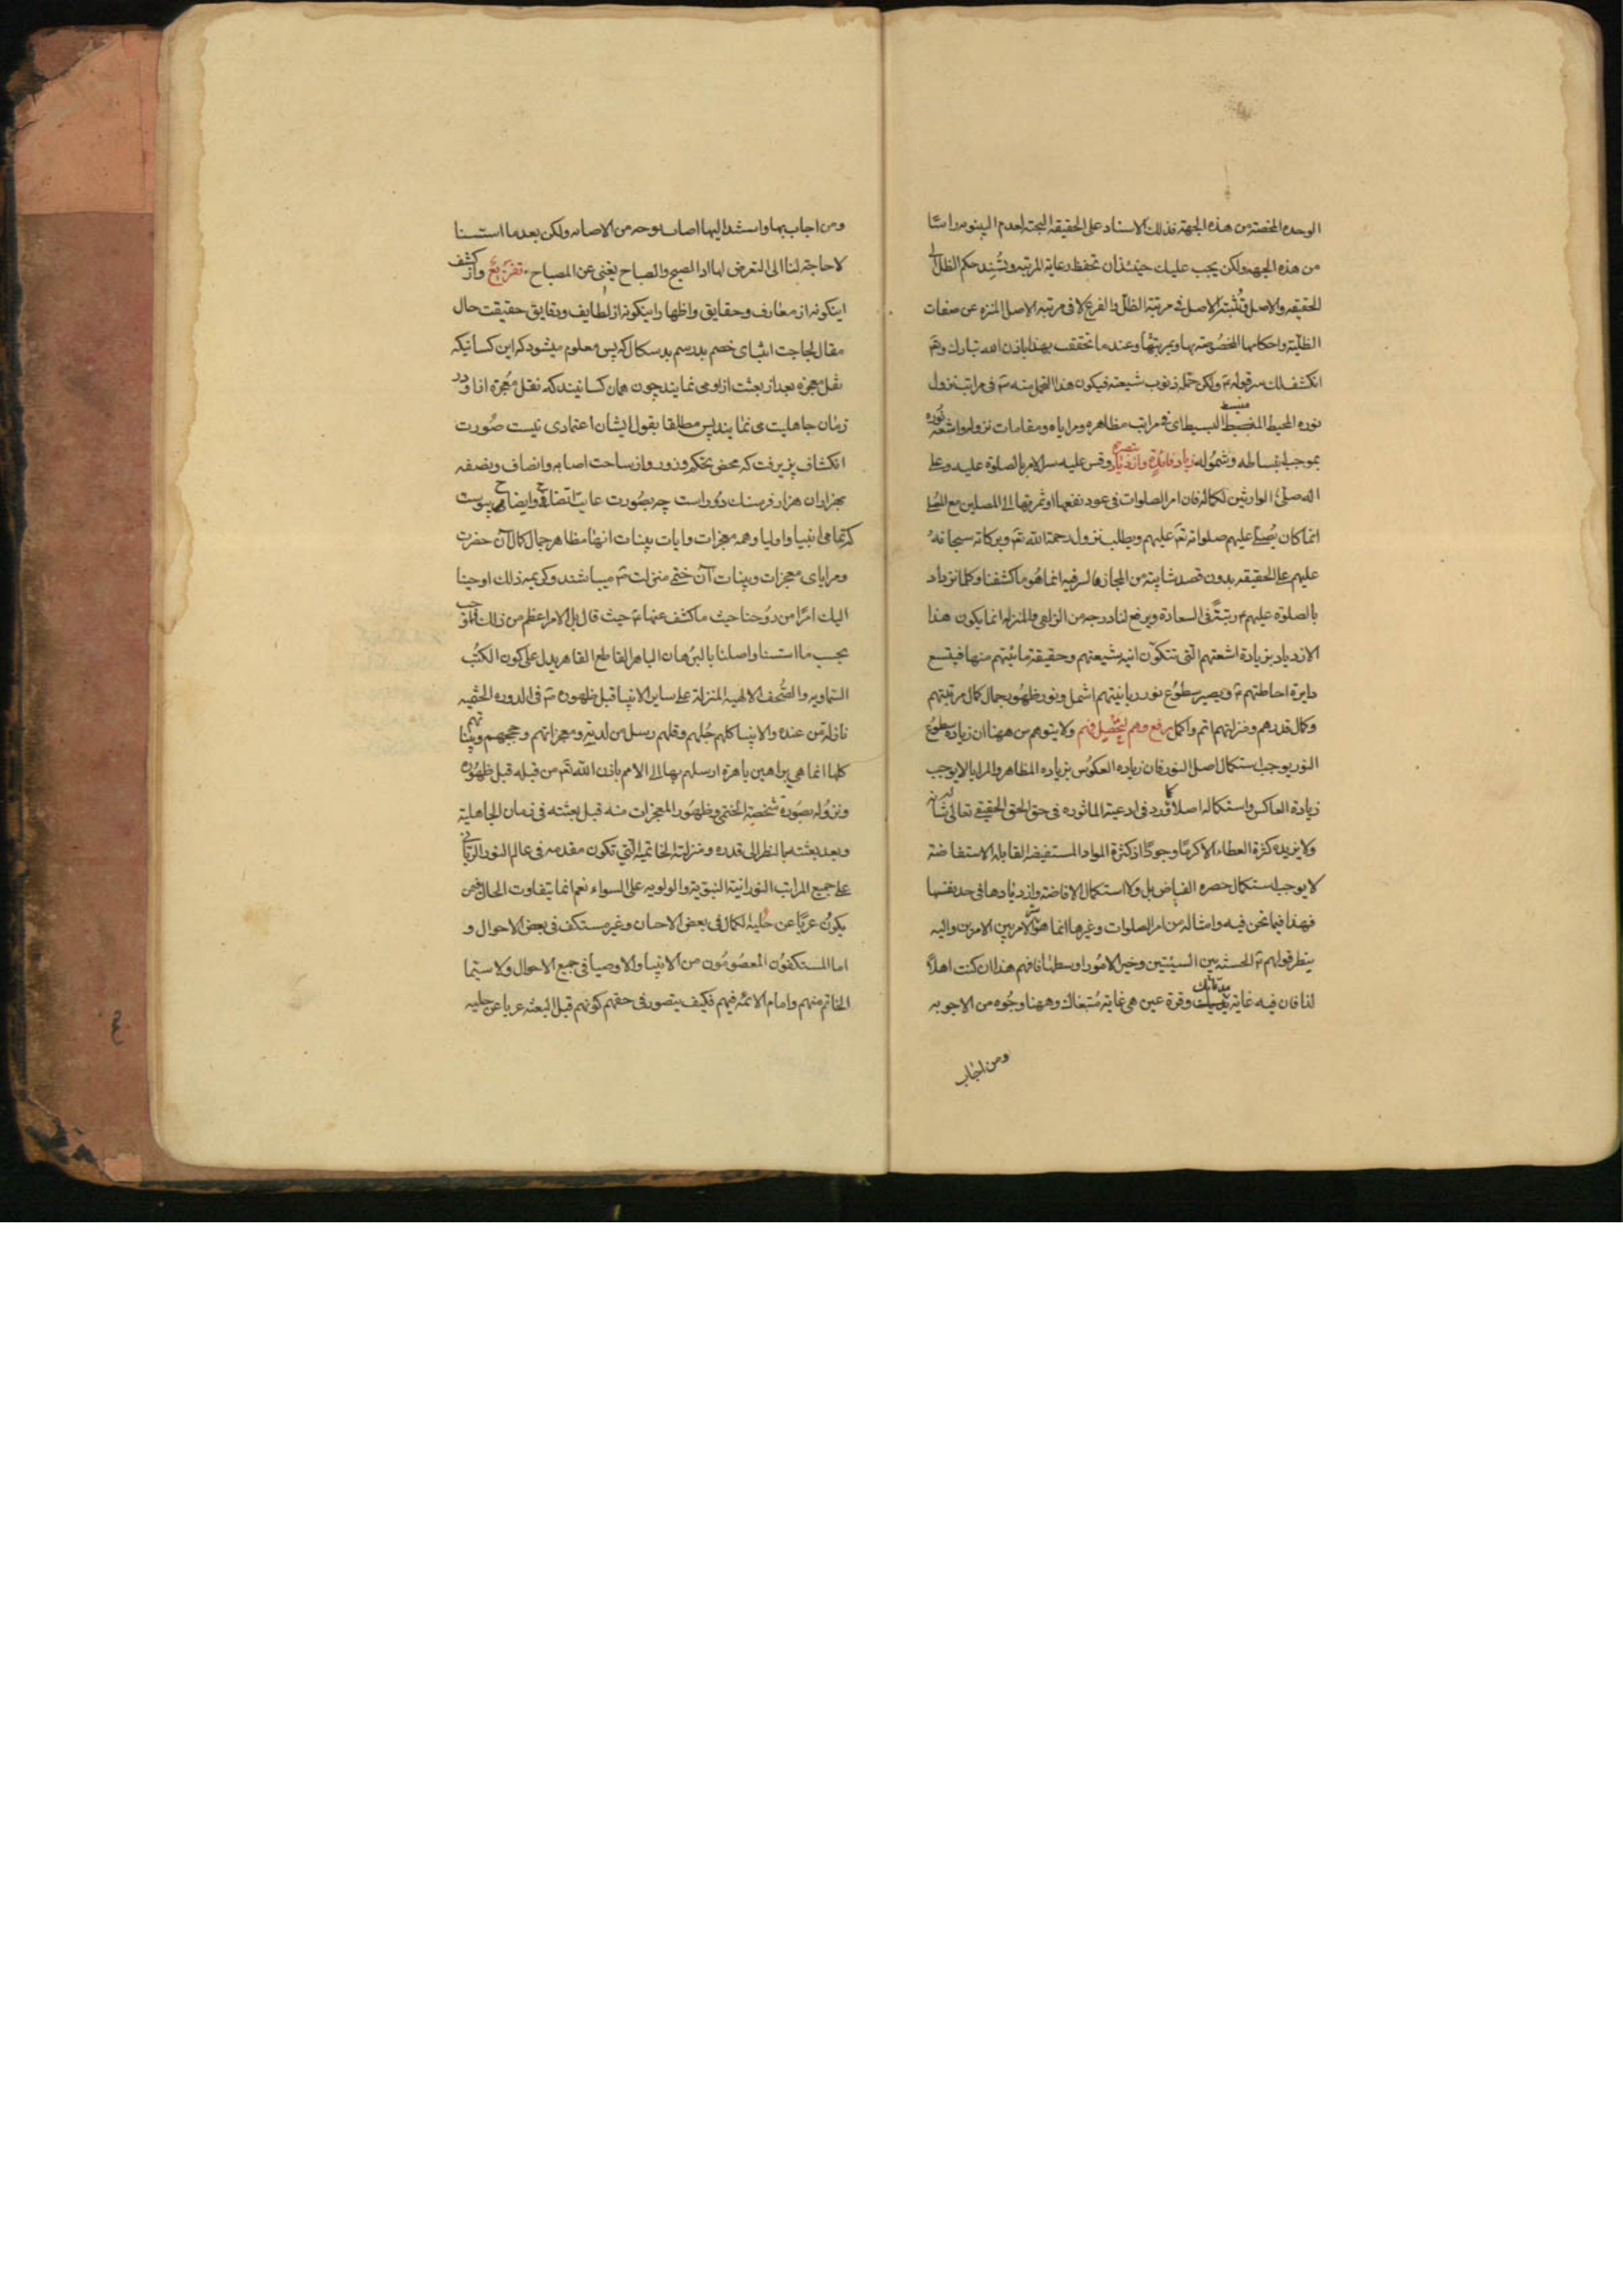 الوحده المختصة من هذه الجهة فذلك الاسناد على الحقيقة البحتة لعدم البينونه راسًا
من هذه الجهه ولكن يجب عليك حينئذ ان تحفظ رعاية المرتبه وتُسند حكم الظل الى
الحقيقه والاصل فتُثبته للاصل فى مرتبة الظلّ والفرع لا فى مرتبة الاصل المنزه عن صفات
الظلّية واحكامها المخصُوصة بها وبمرتبتها وعندما تحققت بهذا باذن الله تبارك وتع
انكشف لك سر قوله ع ولكن حمّله ذنوب شيعته فيكون هذا التحمل منه ع فى مراتب نزول
نوره المحيط المنبسط البسيط اى فى مراتب مظاهره ومراياه ومقامات نزوله واشعة نوره
بموجب انبساطه وشمُوله زياد فايدة وازدياد تبصره وقس عليه سر الامر بالصلوة عليه وعلى
اله صلّى الوارثين لكماله فان امر الصلوات فى عود نفعها وثمرتها الى المصلين مع
انما كان يُصلّى عليهم صلواته تع عليهم ويطلب نزول رحمة الله تع وبركاته سبحانهُ
عليهم على الحقيقه بدون قصد شايبة من المجاز فالسر فيه انما هُو ما كشفنا وكلما نزداد
بالصلوة عليهم ع رتبةً فى السعادة ويرفع لنا درجه من الزلفى والمنزله انما يكون هذا
الازدياد بزيادة اشعتهم التى تتكوّن انية شيعتهم وحقيقة مائيتهم منها فيتسع
دايرة احاطتهم ع ويصير سطُوع نور ربانيتهم اشمل ونور ظهُور جمال كمال مرتبتهم
وكمال قدرهم ومنزلتهم اتم واكمل رفع وهم لتحصيل فهم ولا يتوهم من ههنا ان زياده سطوع
النور يوجب استكمال اصل النور فان زياده العكوُس بزياده المظاهر والمرايا لا يوجب
زيادة العاكس واستكماله اصلا كما ورد فى ادعية الماثوره فى حق الحق الحقيقى تعالى شانه
ولا يزيده كثرة العطاء الا كرمًا وجودًا اذ كثرة المواد المستفيضه القابله الاستفاضة
لا يوجب استكمال حصره الفياض بل ولا استكمال الافاضة وازديادها فى حد نفسها
فهذا فيما نحن فيه وامثاله من امر الصلوات وغيرها انما هو الامر بين الامرين واليه
ينظر قولهم ع الحسنه بين السيئتين وخير الامُور اوسطها فافهم هذا ان كنت اهلًا
لذا فان فيه غاية وقرة عين هى غاية مُتبغاك وههنا وجُوه من الاجوبه
ومن اجاب
ومن اجاب بها واستند اليها اصاب بوجه من الاصابه ولكن بعد ما استسنا
لا حاجة لنا الى التعرض لها اذ الصبح والصباح يغنى عن المصباح تفريع واز كشف
اينكونه از معارف وحقايق واظهار اينكونه از لطايف ودقايق حقيقت حال
مقال لجاجت انتمای خصم بدرسم بدسكال كه پس معلوم ميشود كه اين كسانيكه
نقل معجزه بعد از بعثت از او مى نمايند چون همان كسانيند كه نقل معجزة اذا ودر
زمان جاهليت مى نمايند پس مطلقا بقول ايشان اعتمادى نيست صُورت
انكشاف پزيرفت كه محض تحكم وزور واز ساحت اصابه وانصاف ونصفه
بهزاران هزار فرسنك دُور است چه بصُورت غايت اتضاح وايضاح پيوست
كه تمامى انبيا واوليا وهمه معجزات وايات بينات انها مظاهر جمال كمال آن حضرت
ومراياى معجزات وبينات آن ختمى منزلت ع ميباشند وكريمه ذلك اوحينا
اليك امرًا من رُوحنا حيث ما كشف عنها ع حيث قال بل الامر اعظم من ذلك
بحسب ما استسنا واصلنا بالبرُهان الباهر القاطع القاهر يدل على كون الكتُب
السّماويه والصُّحف الالهيه المنزلة على ساير الانبيا قبل ظهوره ع فى الدوره الختميه
نازلة من عنده والانبيا كلهم جُلهم وقلهم رسل من لديه ومعجزاتهم وحججهم وبيّناتهم
كلها انما هى براهين باهرة ارسلهم بها الى الامم باذن الله تع من قبله قبل ظهُوره
ونزُوله بصُورة شخصية الختمى وظهُور المعجزات منه قبل بعثته فى زمان الجاهلية
وبعد بعثته بالنظر الى قدره ومنزلته الخاتمية التى تكون مقدمه فى عالم النور الربّانى
على جميع المراتب النورانية النبوّية والولويه على السواء نعم انما يتفاوت الحال فيمن
يكوُن عريًا عن حُلية الكمال فى بعض الاحيان وغير مستكف فى بعض الاحوال و
اما المستكفوُن المعصُومُون من الانبيا والاوصيا فى جميع الاحوال ولا سيّما
الخاتم منهم وامام الائمه فيهم فكيف يتصور فى حقهم كونهم قبل البعثه عريا عن حليه